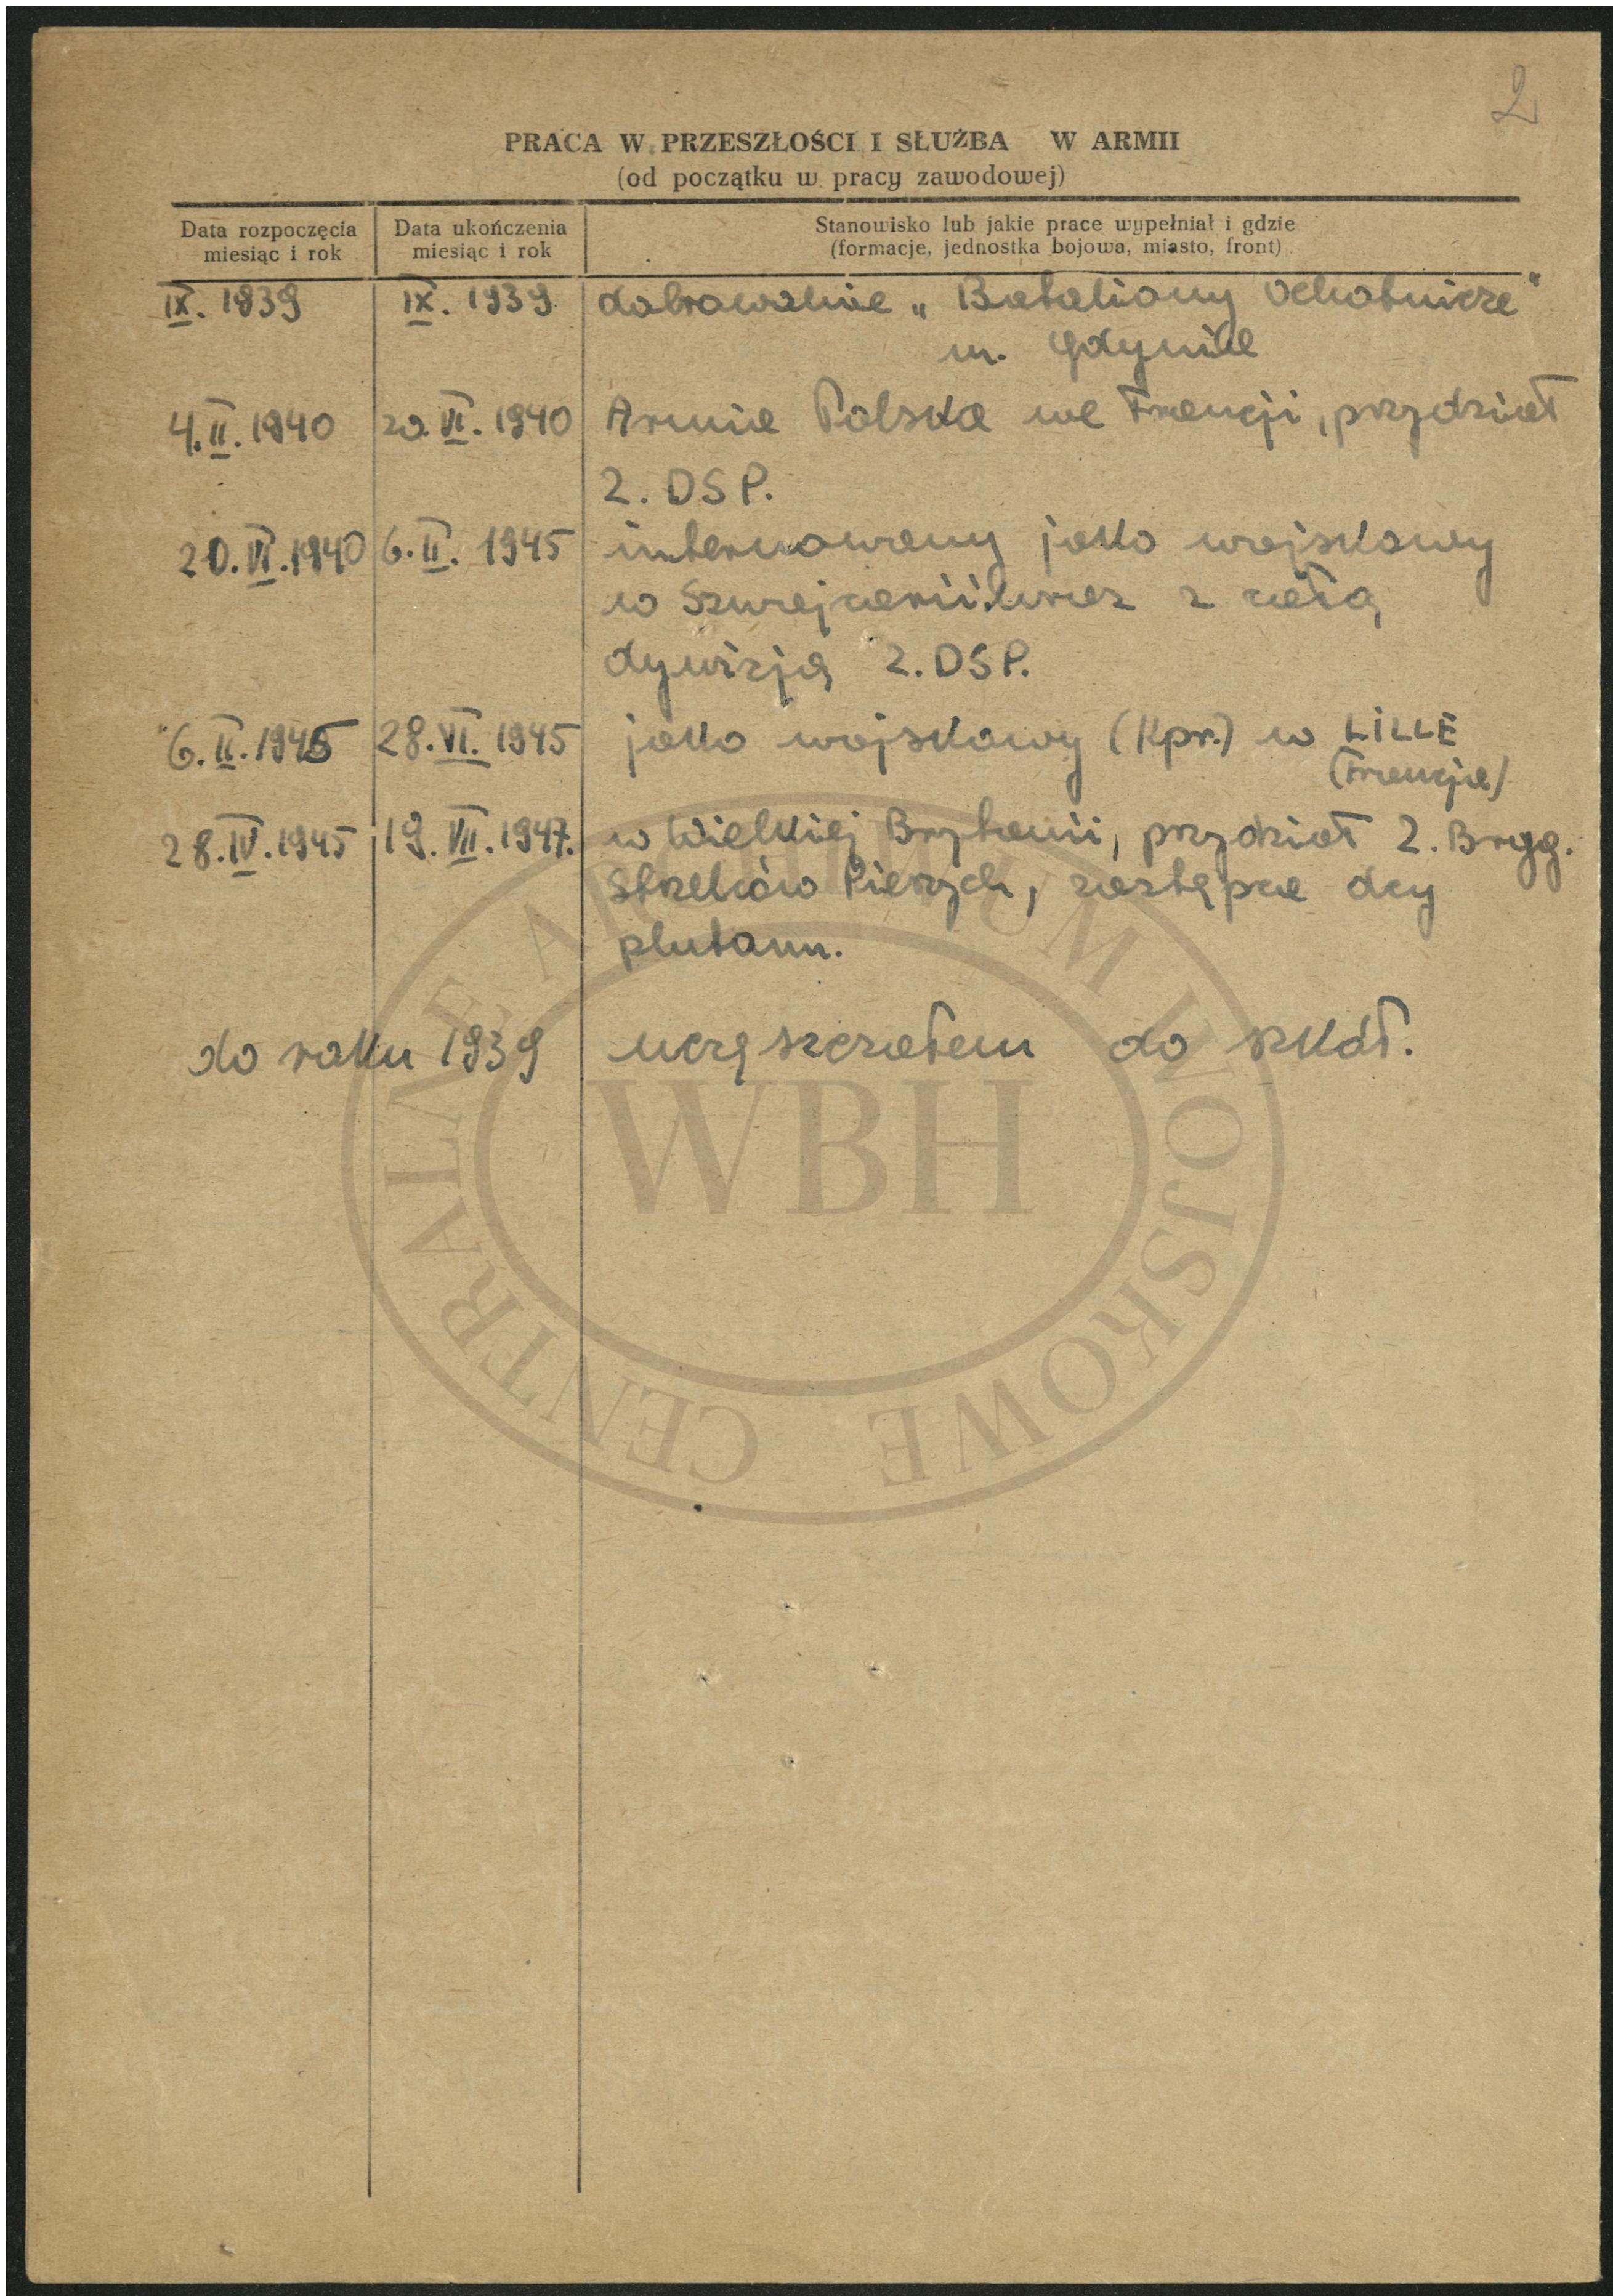 2
PRACA W PRZESZŁOŚCI I SŁUŻBA W ARMII
(od początku w pracy zawodowej)
Data rozpoczęcia miesiąc i rok
Data ukończenia miesiąc i rok
Stanowisko lub jakie prace wypełniał i gdzie
(formacje, jednostka bojowa, miasto, front)
IX. 1939 IX. 1939 dobrowolnie „Bataliony Ochotnicze"
m. Gdynia
4.II.1940 20.VI.1940 Armia Polska we Francji, przydział
2. DSP.
20.VI.1940 6.II.1945 internowany jako wojskowy
w Szwajcarii wraz z całą
dywizją 2. DSP.
6.II.1945 28.VI.1945 jako wojskowy (Kpr.) w LILLE
(Francja)
28.IV.1945 19.VII.1947. w Wielkiej Brytanii, przydział 2. Bryg.
Strzelców Pieszych, zastępca dcy
plutonu.
do roku 1939 uczęszczałem do szkół.
CENTRALNE ARCHIWUM WOJSKOWE
WBH